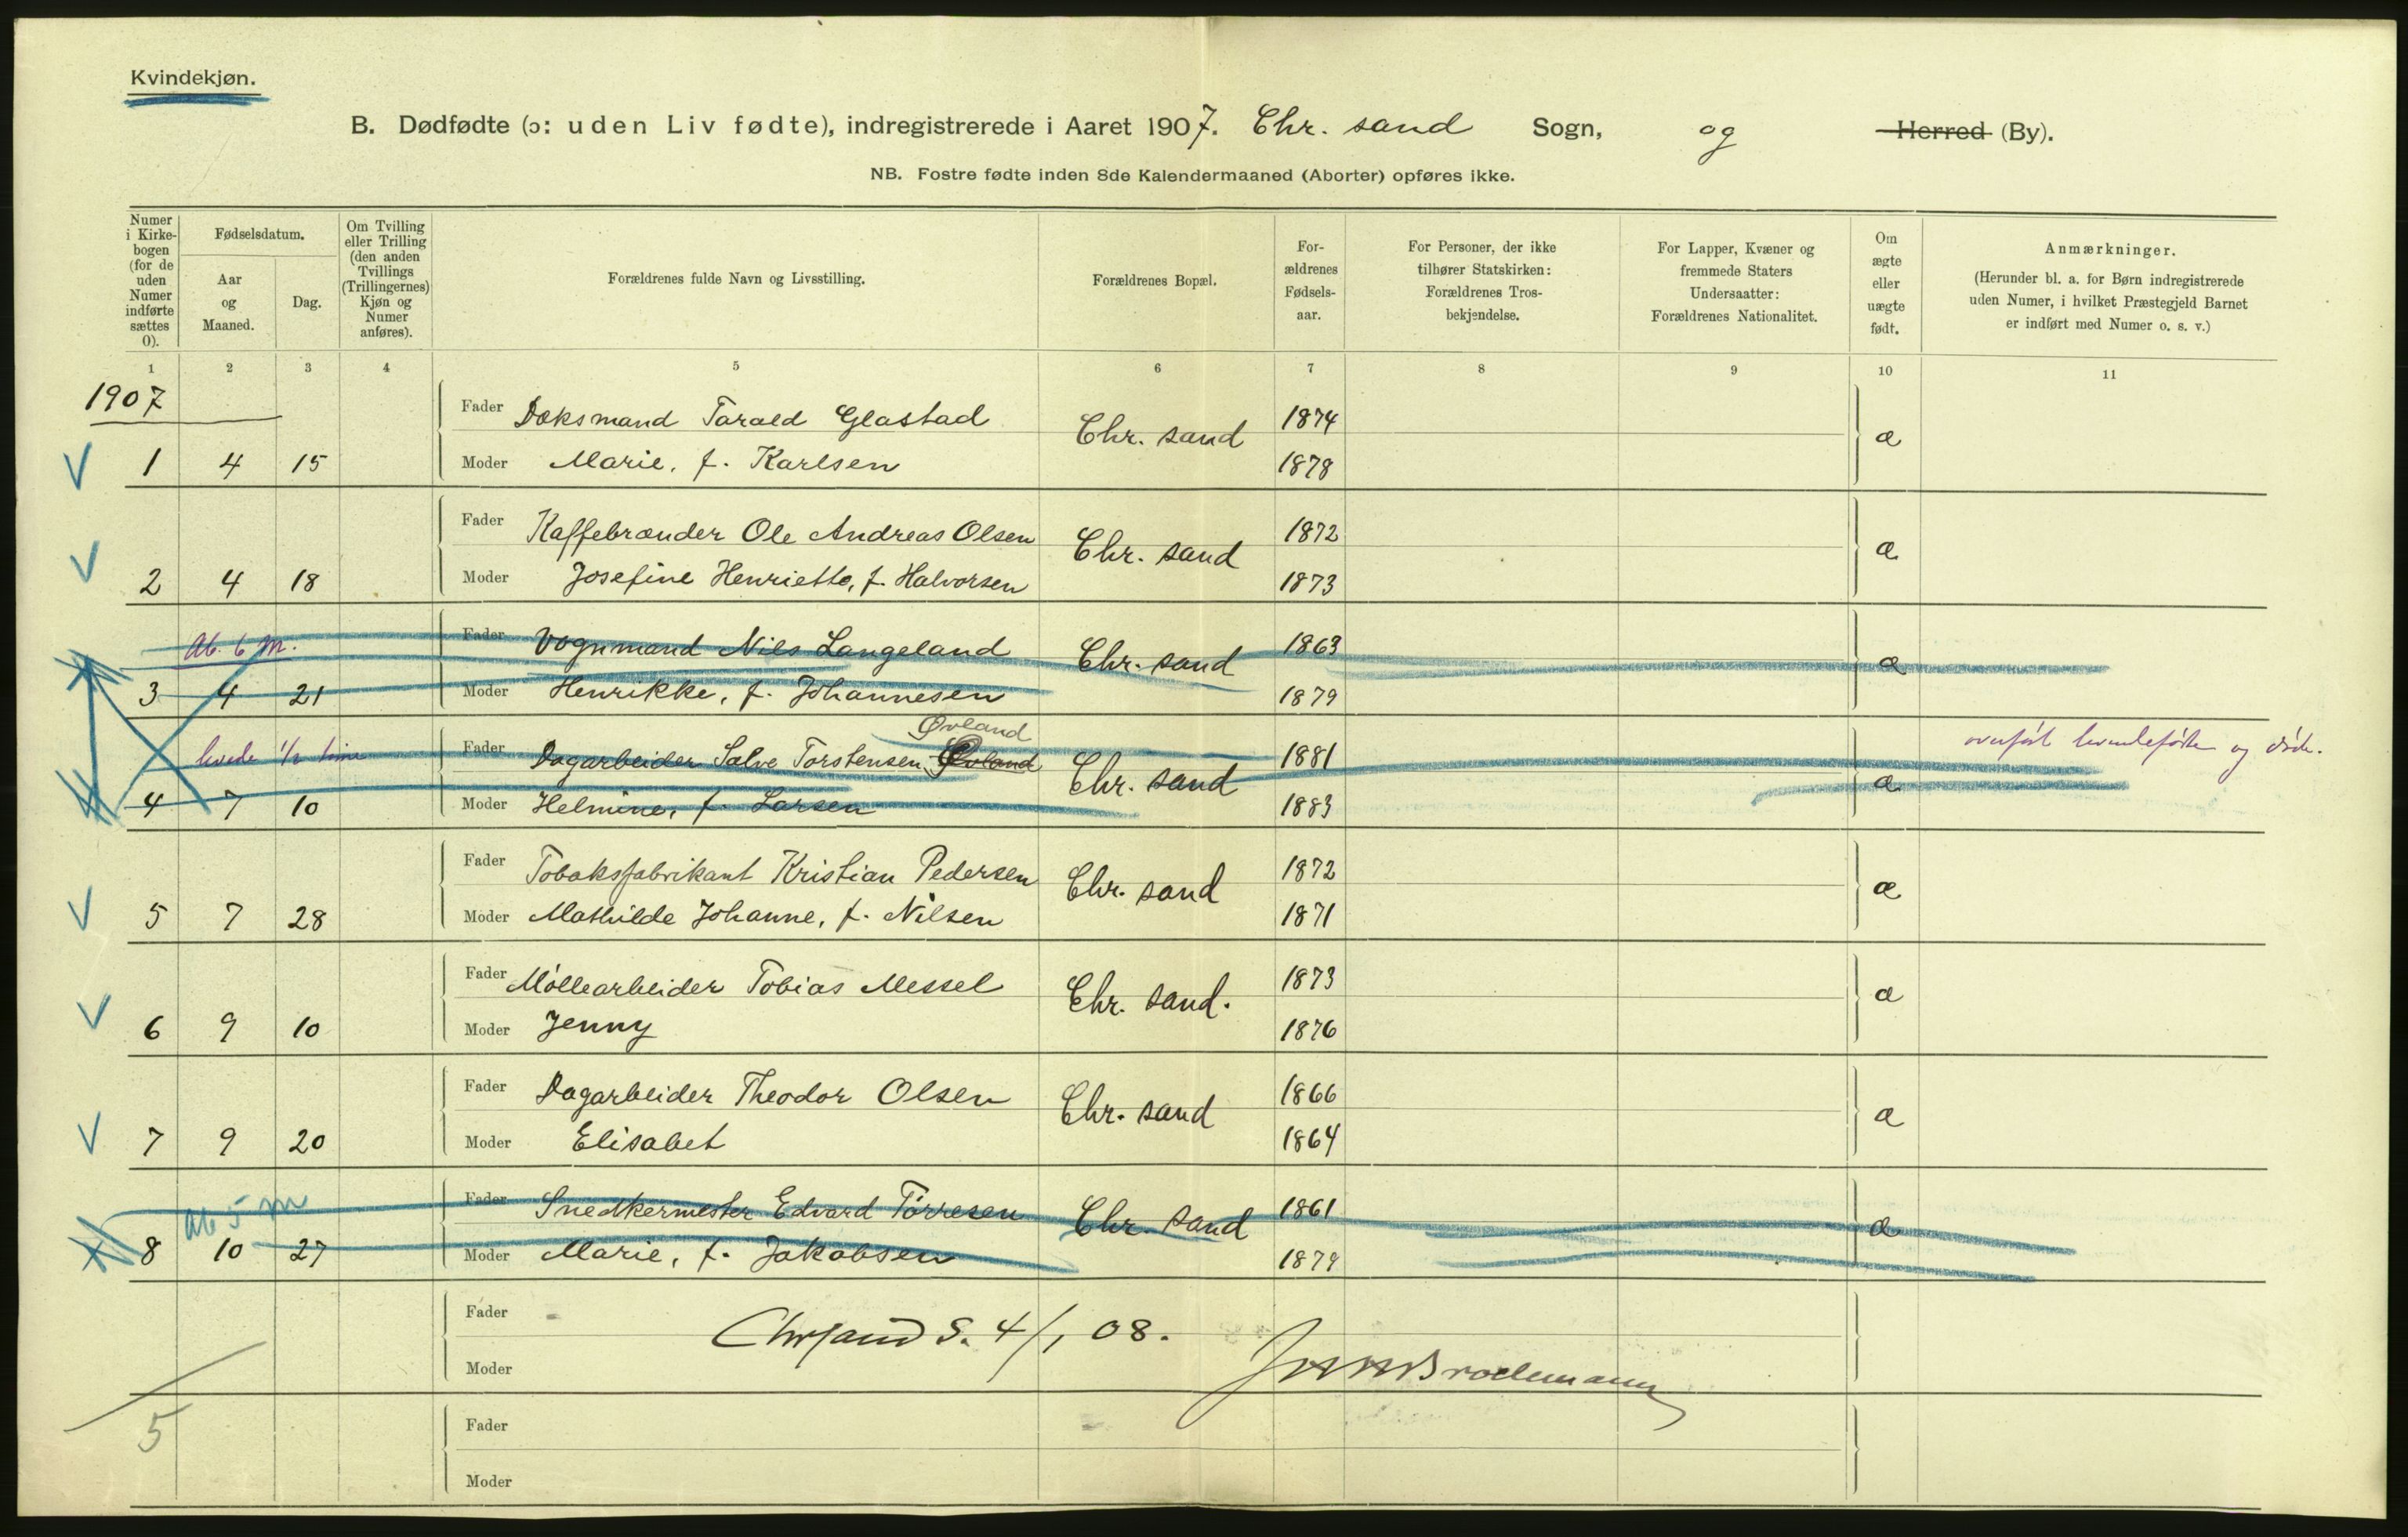 Kvindekjøn.
B. Dødfødte (ɔ: uden Liv fødte), indregistrerede i Aaret 1907. Chr. sand Sogn, og Herred (By).
NB. Fostre fødte inden 8de Kalendermaaned (Aborter) opføres ikke.
Numer i Kirke- bogen (for de uden Numer indførte sættes 0).
Fødselsdatum.
Aar og Maaned.
Dag.
Om Tvilling eller Trilling (den anden Tvillings (Trillingernes) Kjøn og Numer anføres).
Forældrenes fulde Navn og Livsstilling.
Forældrenes Bopæl.
For- ældrenes Fødsels- aar.
For Personer, der ikke tilhører Statskirken: Forældrenes Tros- bekjendelse.
For Lapper, Kvæner og fremmede Staters Undersaatter: Forældrenes Nationalitet.
Om ægte eller uægte født.
Anmærkninger.
(Herunder bl. a. for Børn indregistrerede uden Numer, i hvilket Præstegjeld Barnet er indført med Numer o. s. v.)
1 2 3 4 5 6 7 8 9 10 11
1907
Fader Doksmand Tarald Glastad Chr. sand 1874 æ
1 4 15 Moder Marie, f. Karlsen 1878
Fader Kaffebrænder Ole Andreas Olsen Chr. sand 1872 æ
2 4 18 Moder Josefine Henriette, f. Halvorsen 1873
Ab. 6 m. Fader Vognmand Nils Langeland Chr. sand 1863 æ
3 4 21 Moder Henrikke, f. Johannesen 1879
Øvland
levede 1/2 time Fader Dagarbeider Salve Torstensen Øvland Chr. sand 1881 æ overført levendefødte og døde.
4 7 10 Moder Helmine, f. Larsen 1883
Fader Tobaksfabrikant Kristian Pedersen Chr. sand 1872 æ
5 7 28 Moder Mathilde Johanne, f. Nilsen 1871
Fader Møllearbeider Tobias Messel Chr. sand. 1873 æ
6 9 10 Moder Jenny 1876
Fader Dagarbeider Theodor Olsen Chr. sand 1866 æ
7 9 20 Moder Elisabet 1864
Ab 5 m Fader Snedkermester Edvard Tørresen Chr. sand 1861 æ
8 10 27 Moder Marie, f. Jakobsen 1879
Fader Chrsand S. 4/1 08.
Moder
5 Fader
Moder